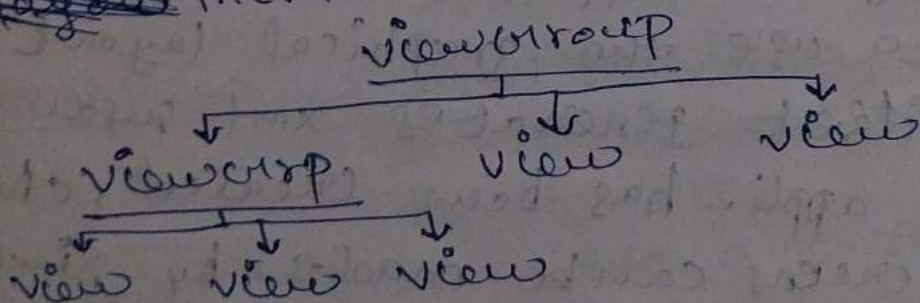 ViewGroup
ViewGrp view view
view view view